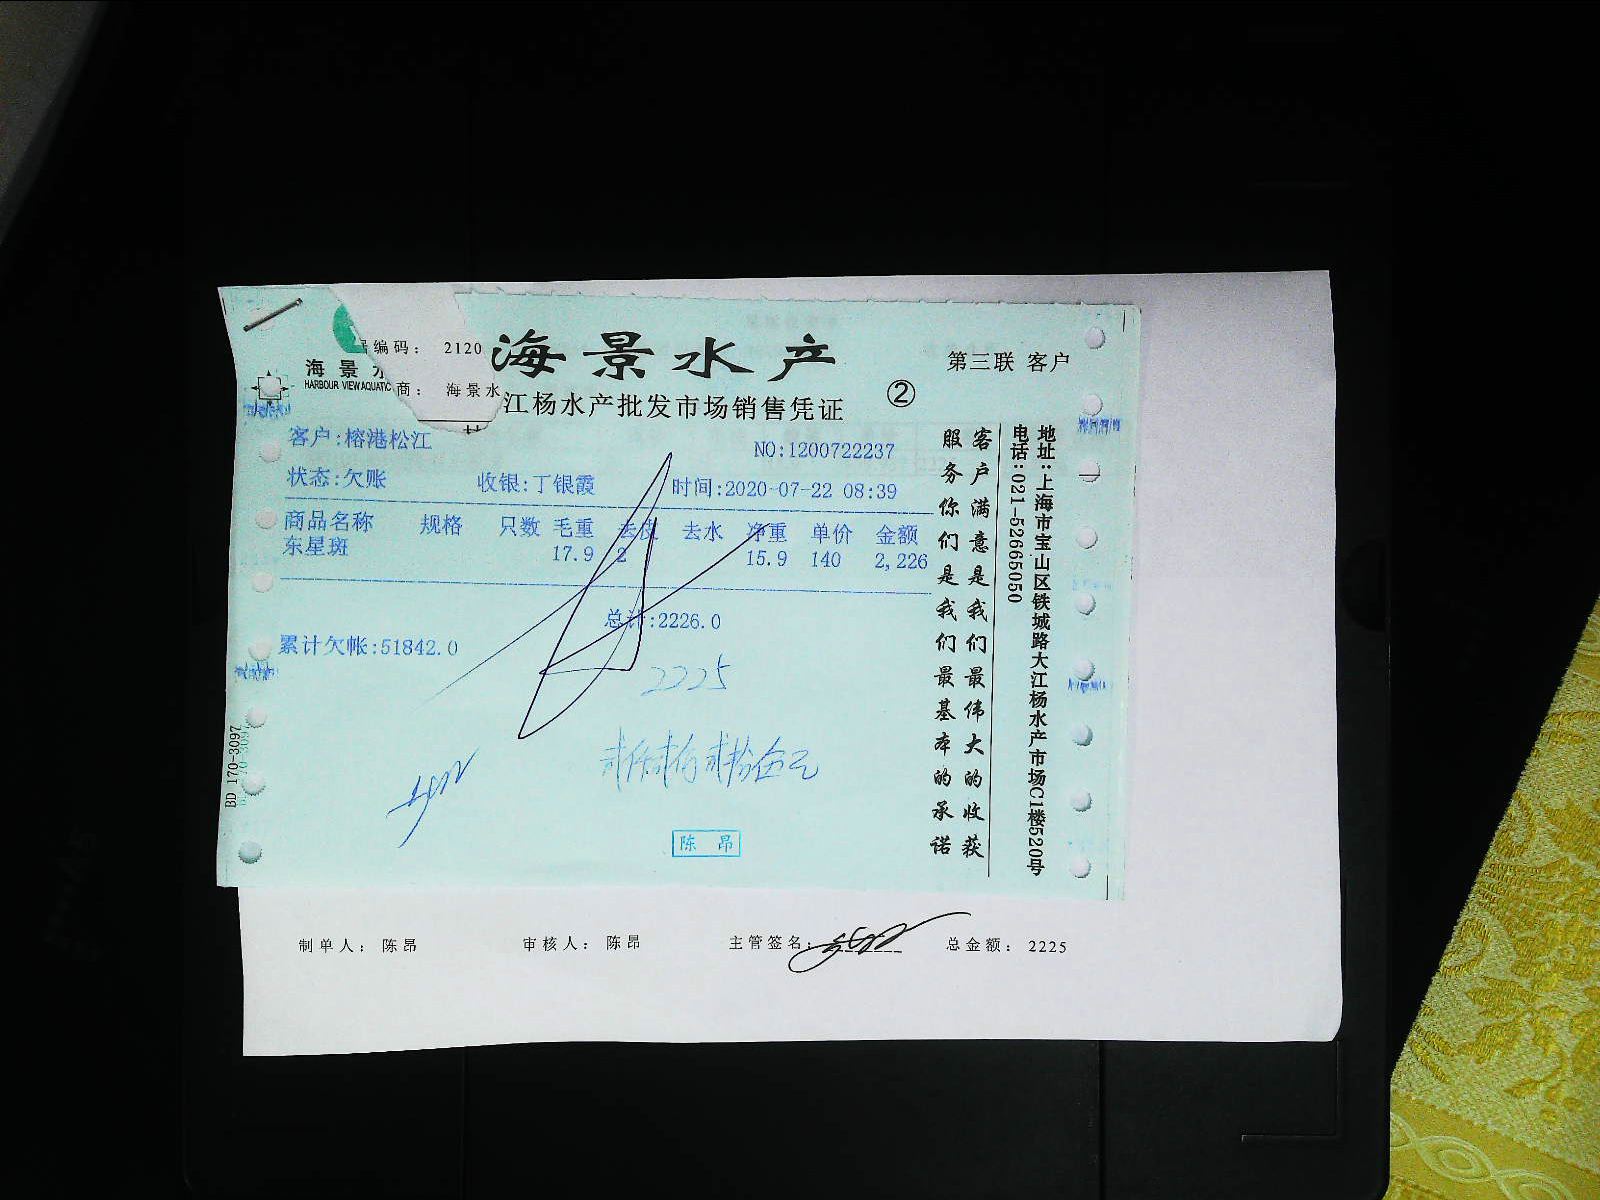 编码： 2120
海景水产
第三联 客户
海景水
HARBOUR VIEW AQUATIC
商： 海景水
江杨水产批发市场销售凭证
②
客户:榕港松江
NO:1200722237
状态:欠账 收银:丁银霞 时间:2020-07-22 08:39
商品名称 规格 只数 毛重 去皮 去水 净重 单价 金额
东星斑 17.9 2 15.9 140 2,226
总计:2226.0
累计欠帐:51842.0
2225
陈昂
BD 170-3097
客户满意是我们最伟大的收获
服务你们是我们最基本的承诺
地址:上海市宝山区铁城路大江杨水产市场C1楼520号
电话:021-52665050
制单人： 陈昂 审核人： 陈昂 主管签名: 总金额： 2225